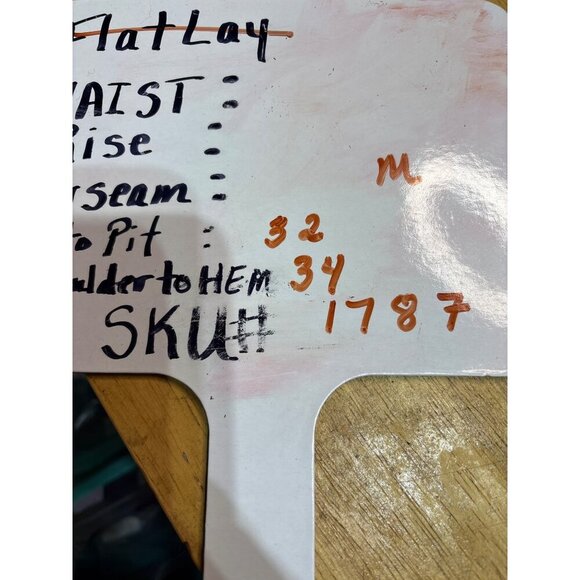 Flat Lay
WAIST :
Rise :
M.
nseam :
to Pit : 32
oulder to HEM 34
SKU# 1787